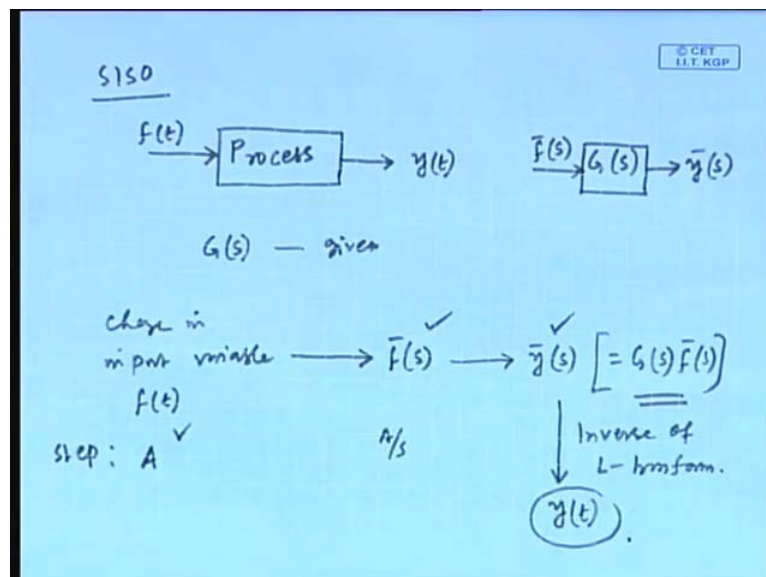 © CET
I.I.T. KGP
SISO
f(t) Process y(t)
f̄(s) G(s) ȳ(s)
G(s) — given
change in
input variable → f̄(s) ✓ → ȳ(s) ✓ [= G(s) f̄(s)]
f(t)
step : A ✓ A/s
Inverse of
L-
y(t) .